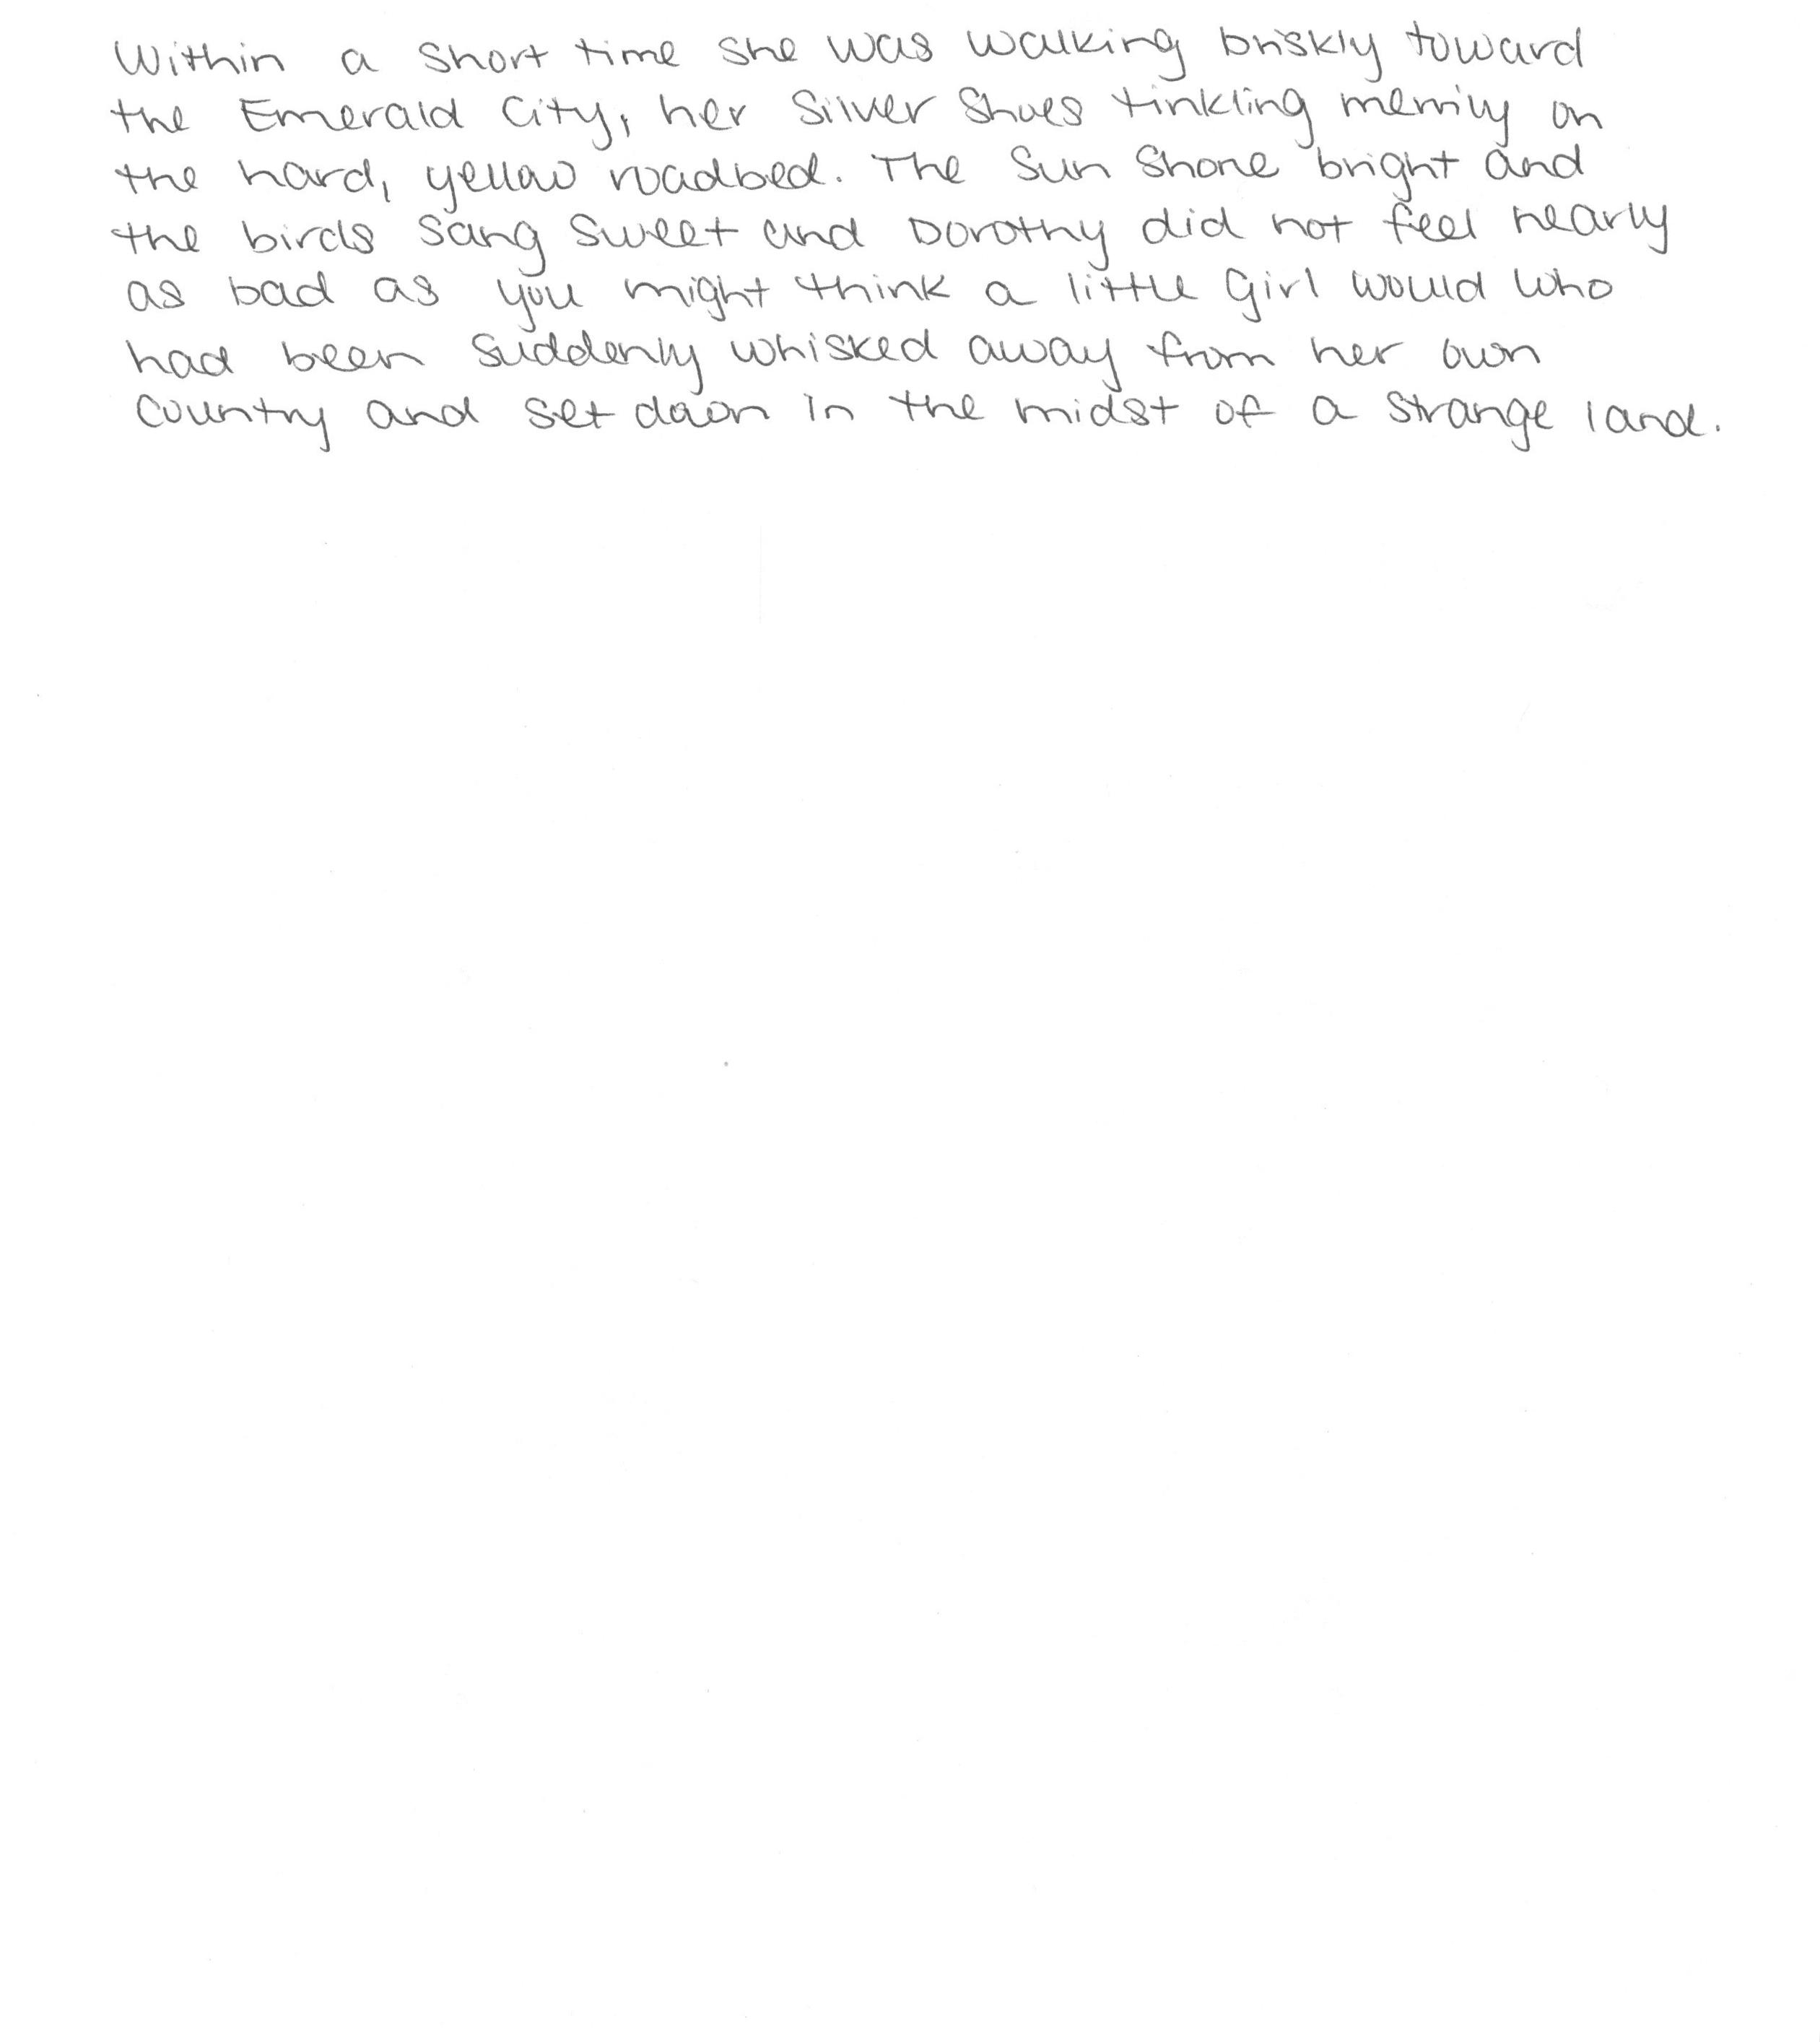 Within a short time she was walking briskly toward
the Emerald City, her Silver Shoes tinkling merrily on
the hard, yellow roadbed. The sun shone bright and
the birds sang sweet and Dorothy did not feel nearly
as bad as you might think a little girl would who
had been suddenly whisked away from her own
country and set down in the midst of a strange land.